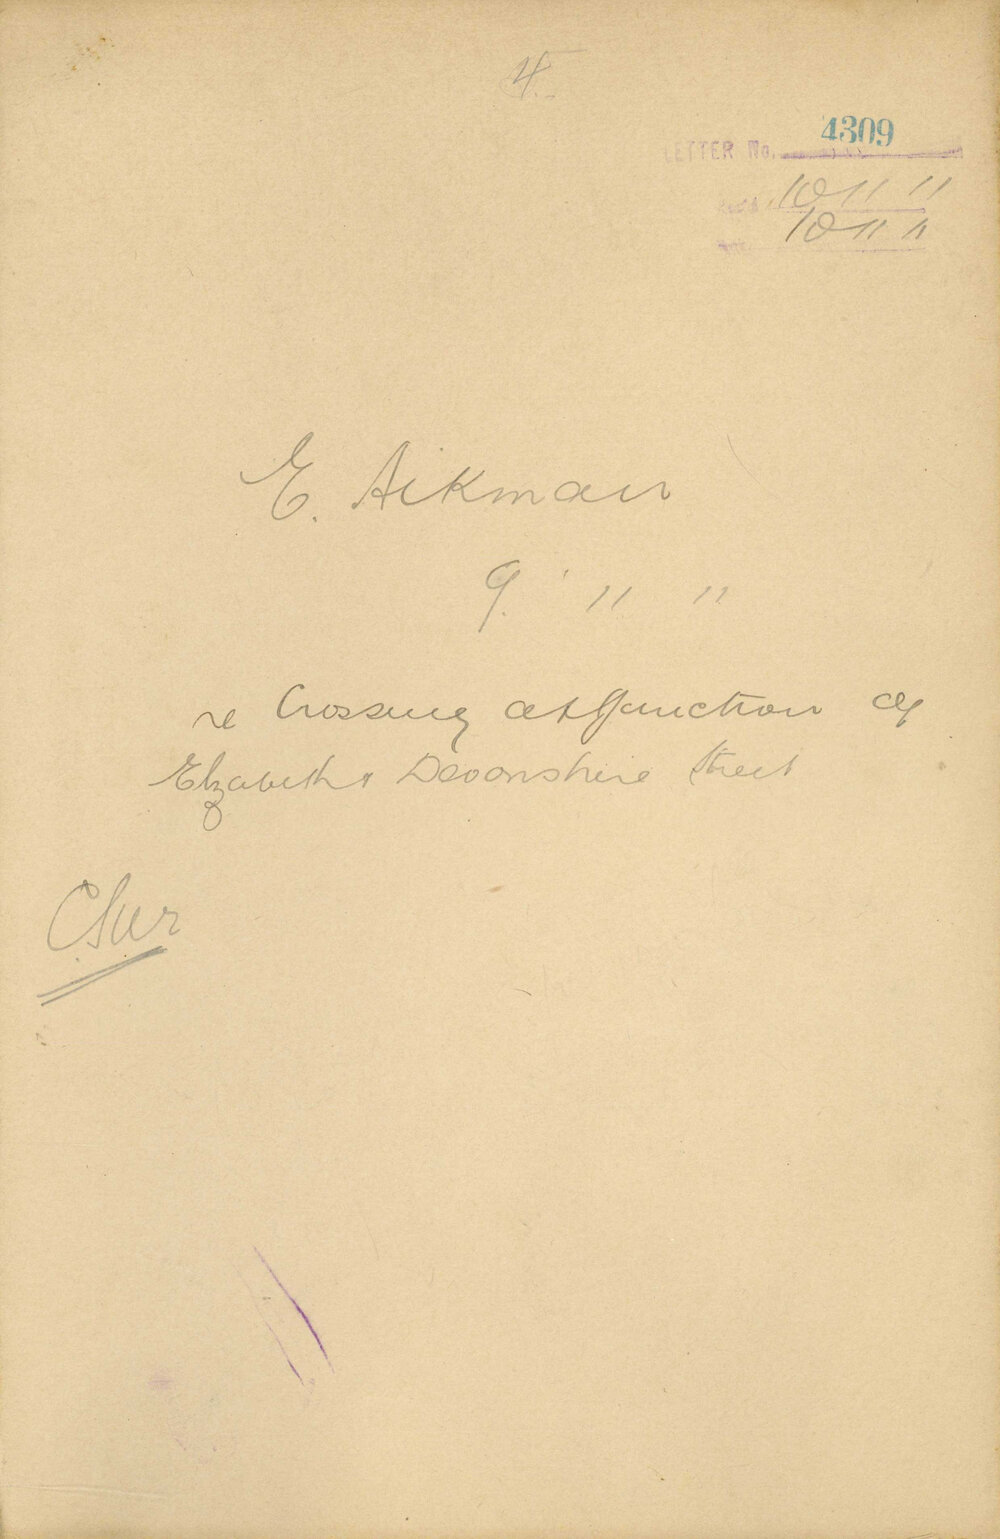 4.
4309
LETTER No.
Recd. 10 11 11
10 11 11
E. Aikman
9. 11 11
re Crossing at Junction of
Elizabeth & Devonshire Street